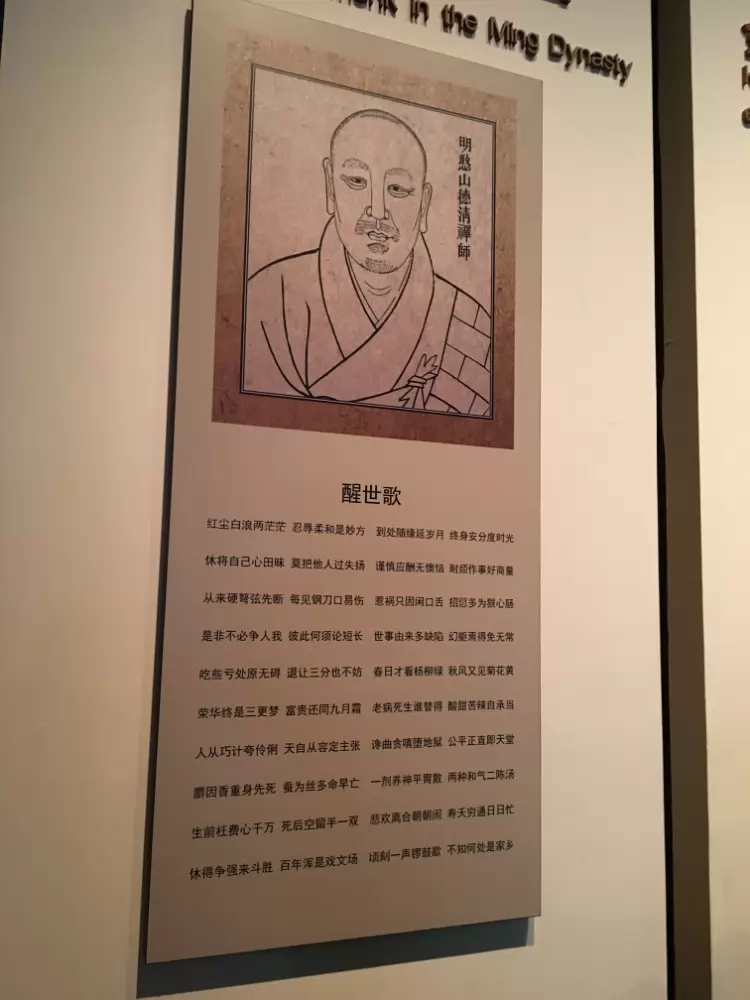 in the Ming Dynasty
明憨山德清禪師
醒世歌
红尘白浪两茫茫 忍辱柔和是妙方 到处随缘延岁月 终身安分度时光
休将自己心田昧 莫把他人过失扬 谨慎应酬无懊恼 耐烦作事好商量
从来硬弩弦先断 每见钢刀口易伤 惹祸只因闲口舌 招愆多为狠心肠
是非不必争人我 彼此何须论短长 世事由来多缺陷 幻躯焉得免无常
吃些亏处原无碍 退让三分也不妨 春日才看杨柳绿 秋风又见菊花黄
荣华终是三更梦 富贵还同九月霜 老病死生谁替得 酸甜苦辣自承当
人从巧计夸伶俐 天自从容定主张 谗曲贪嗔堕地狱 公平正直即天堂
麝因香重身先死 蚕为丝多命早亡 一剂养神平胃散 两种和气二陈汤
生前枉费心千万 死后空留手一双 悲欢离合朝朝闹 寿夭穷通日日忙
休得争强来斗胜 百年浑是戏文场 顷刻一声锣鼓歇 不知何处是家乡